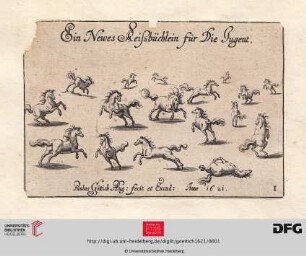 Ein Newes Reißbüchlein für Die Jugent.
fecit et Excud: Anno 1621.
1
UNIVERSITÄTS-
BIBLIOTHEK
HEIDELBERG
DFG
http://digi.ub.uni-heidelberg.de/diglit/goettich1621/0001
© Universitätsbibliothek Heidelberg